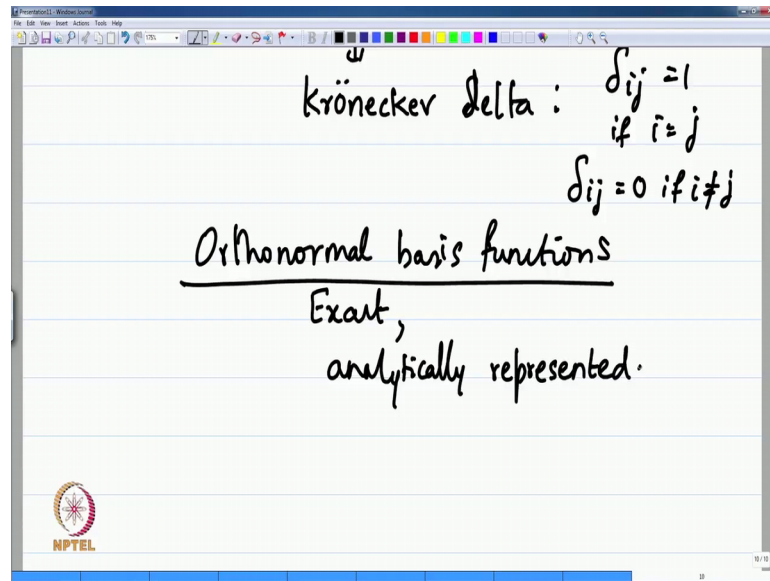 Presentation11 - Windows Journal
File Edit View Insert Actions Tools Help
175%
B I
Krönecker delta : δij = 1
if i = j
δij = 0 if i ≠ j
Orthonormal basis functions
Exact,
analytically represented.
NPTEL
10 / 10
10